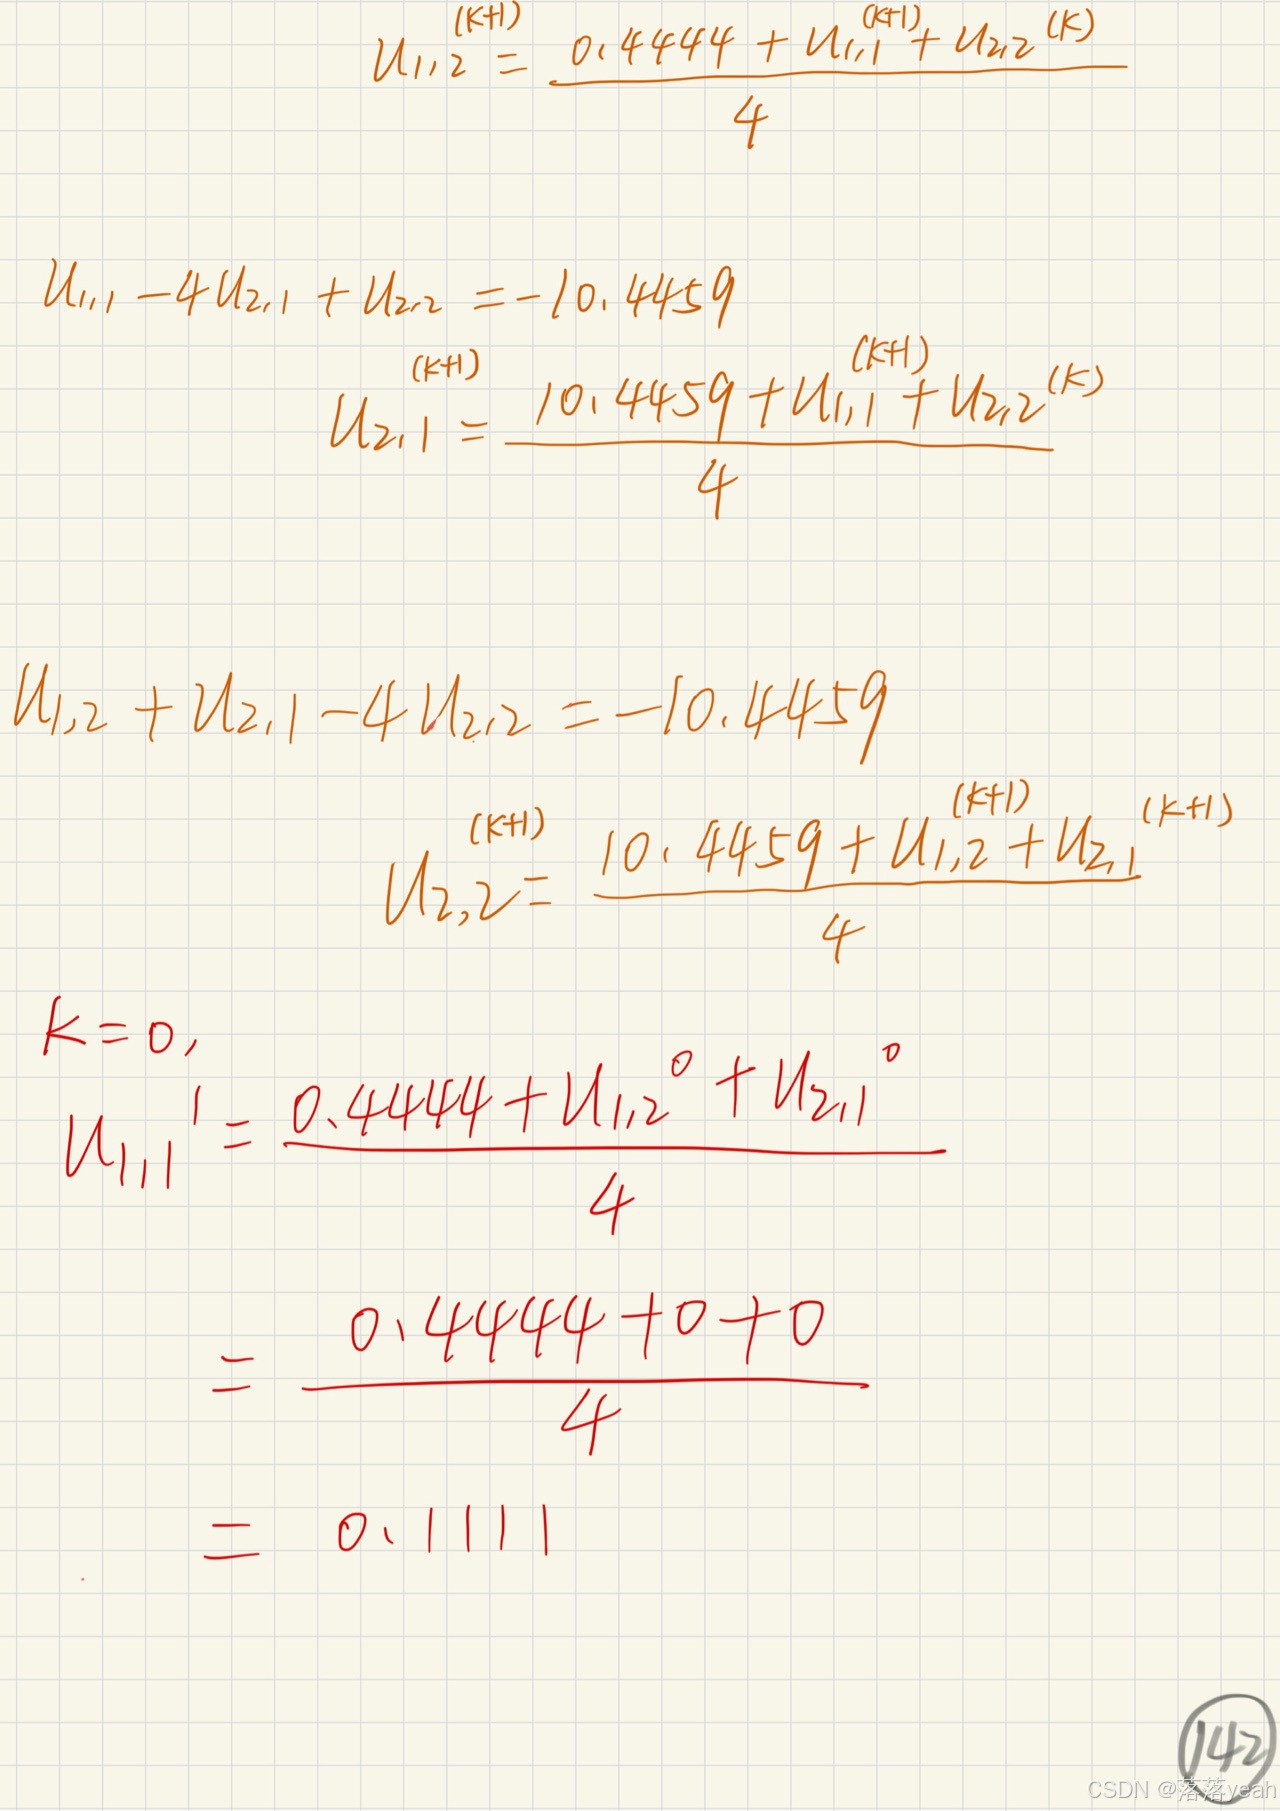 u₁,₂⁽ᵏ⁺¹⁾ = (0.4444 + u₁,₁⁽ᵏ⁺¹⁾ + u₂,₂⁽ᵏ⁾) / 4
u₁,₁ − 4u₂,₁ + u₂,₂ = −10.4459
u₂,₁⁽ᵏ⁺¹⁾ = (10.4459 + u₁,₁⁽ᵏ⁺¹⁾ + u₂,₂⁽ᵏ⁾) / 4
u₁,₂ + u₂,₁ − 4u₂,₂ = −10.4459
u₂,₂⁽ᵏ⁺¹⁾ = (10.4459 + u₁,₂⁽ᵏ⁺¹⁾ + u₂,₁⁽ᵏ⁺¹⁾) / 4
k = 0,
u₁,₁¹ = (0.4444 + u₁,₂⁰ + u₂,₁⁰) / 4
= (0.4444 + 0 + 0) / 4
= 0.1111
142
CSDN @落落yeah